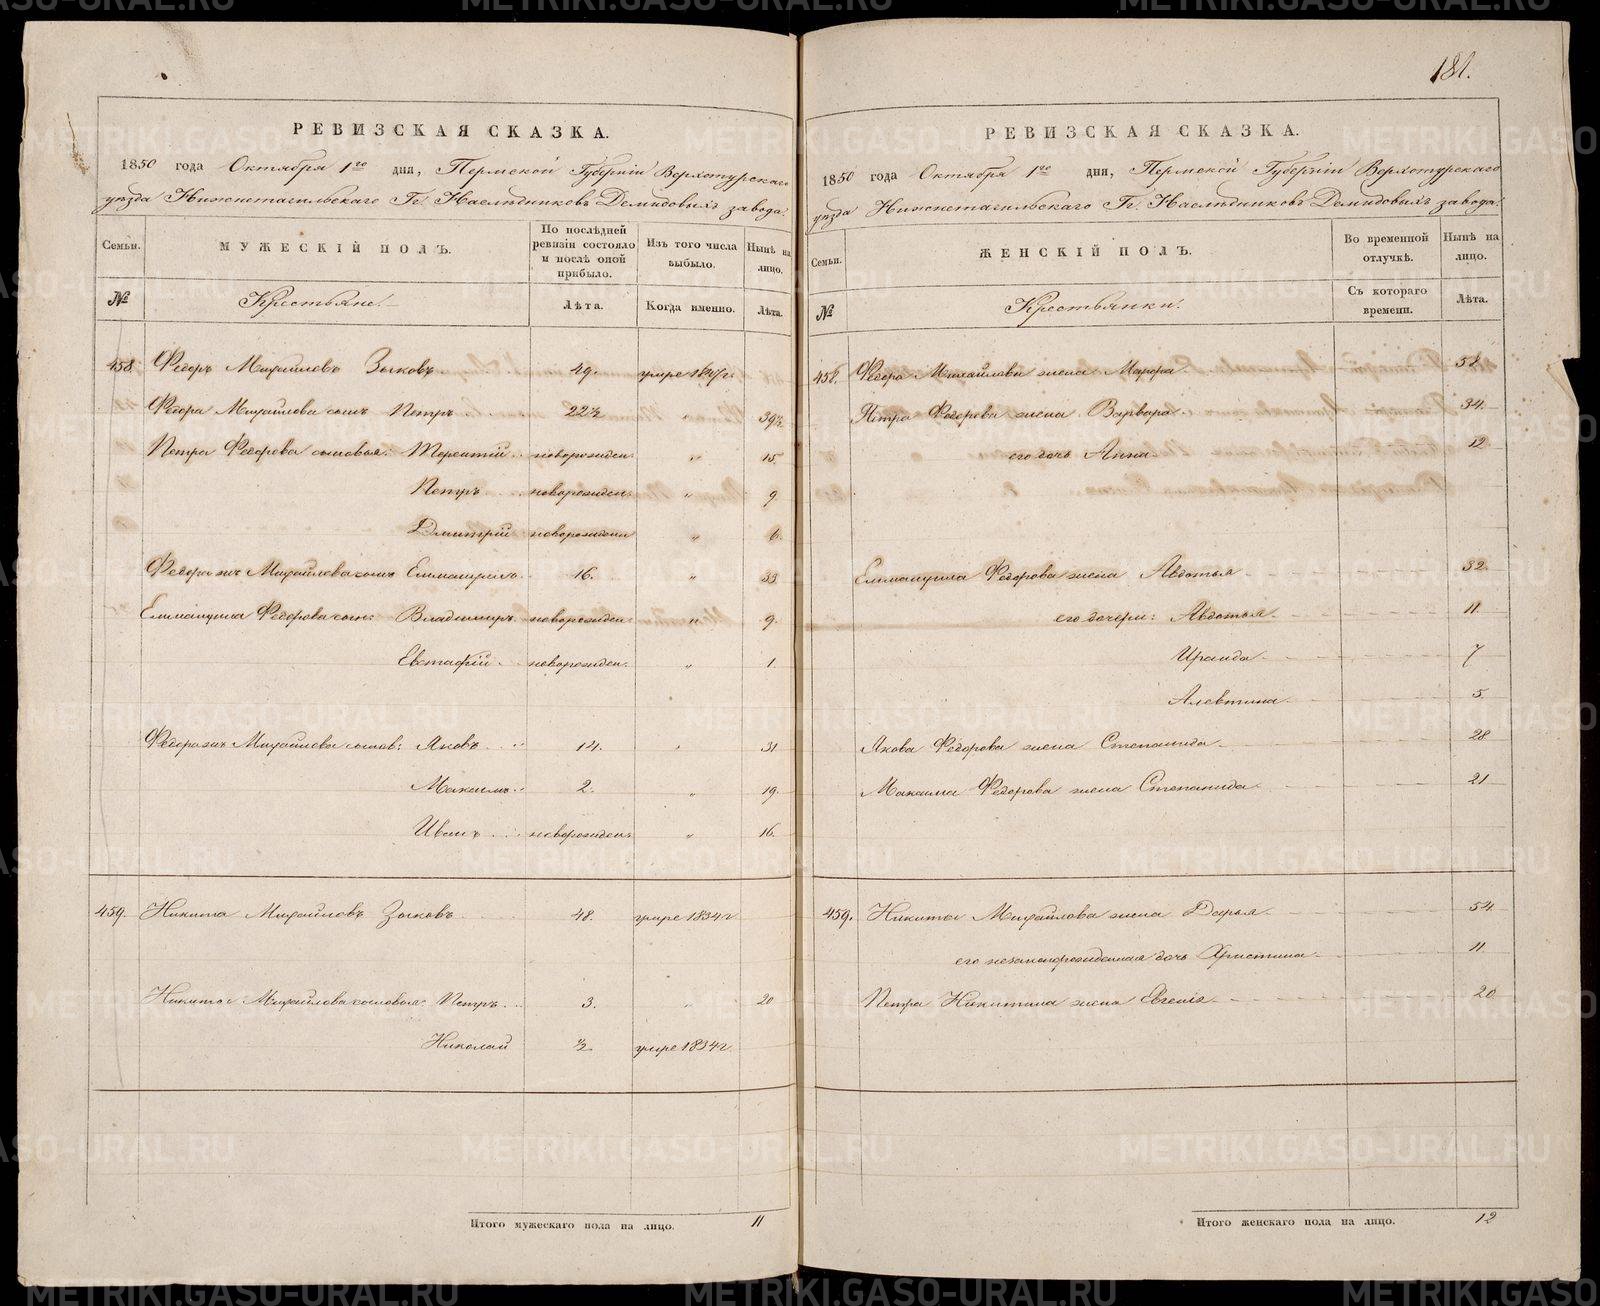 181.
РЕВИЗСКАЯ СКАЗКА.
1850 года Октября 1го дня, Пермской Губерніи Верхотурскаго
уѣзда Нижнетагильскаго Гг. Наслѣдниковъ Демидовыхъ завода.
Семьи. МУЖЕСКІЙ ПОЛЪ. По послѣдней ревизіи состояло и послѣ оной прибыло. Изъ того числа выбыло. Нынѣ на лицо.
№ Крестьяне: Лѣта. Когда именно. Лѣта.
458. Ѳедоръ Михайловъ Зыковъ 49. умре 1847г.
Ѳедора Михайлова сынъ Петръ 22½ " 39½
Петра Ѳедорова сыновья: Терентій новорожден. " 15.
Петръ новорожден. " 9
Дмитрій новорожден " 6.
Ѳедора же Михайлова сынъ Еммануилъ 16. " 33
Еммануила Ѳедорова сын: Владимиръ новорожден. " 9.
Евстафій новорожден. " 1.
Ѳедора же Михайлова сынов: Яковъ 14. " 31
Максимъ 2. " 19.
Иванъ новорожден: " 16.
459. Никита Михайловъ Зыковъ 48. умре 1834г
Никиты Михайлова сыновья: Петръ 3. " 20
Николай ½ умре 1834г.
Итого мужескаго пола на лицо. 11
РЕВИЗСКАЯ СКАЗКА.
1850 года Октября 1го дня, Пермской Губерніи Верхотурскаго
уѣзда Нижнетагильскаго Гг. Наслѣдниковъ Демидовыхъ завода.
Семьи. ЖЕНСКІЙ ПОЛЪ. Во временной отлучкѣ. Нынѣ на лицо.
№ Крестьянки: Съ котораго времени. Лѣта.
458. Ѳедора Михайлова жена Марѳа 58
Петра Ѳедорова жена Варвара 34.
его дочь Анна 12
Еммануила Ѳедорова жена Авдотья 32.
его дочери: Авдотья 11
Ираида 7
Алевтина 5
Якова Ѳедорова жена Степанида 28
Максима Ѳедорова жена Степанида 21
459. Никиты Михайлова жена Дарья 54
его незаконорожденная дочь Христина 11
Петра Никитина жена Евгенія 20
Итого женскаго пола на лицо. 12
METRIKI.GASO-URAL.RU